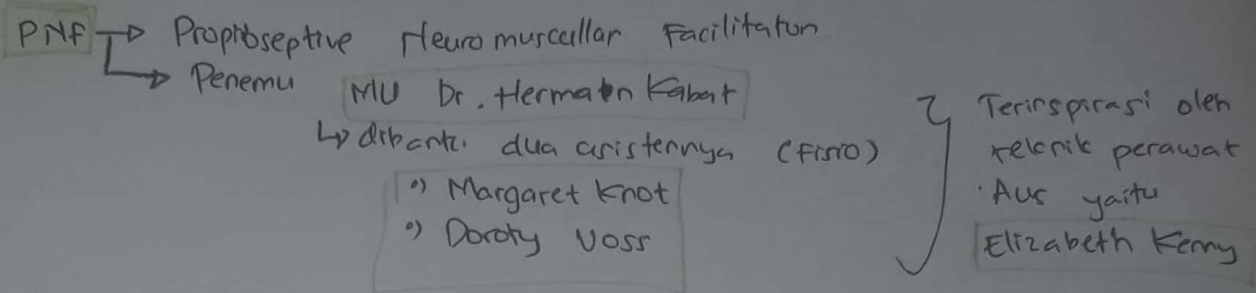 PNF → Proprioseptive Neuromuscullar Facilitaton
→ Penemu MU Dr. Hermann Kabat
↳ dibantu dua asistennya (Fisio)
°) Margaret Knot
°) Doroty Voss
Terinspirasi oleh
teknik perawat
Aus yaitu
Elizabeth Kenny